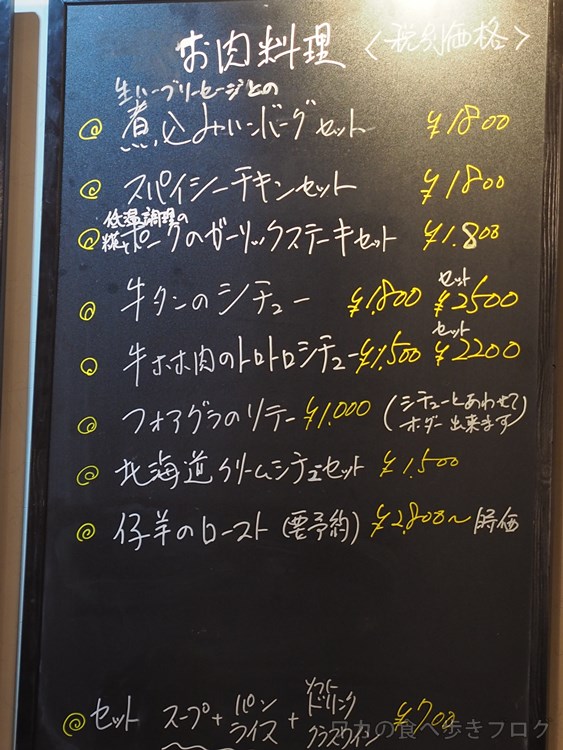 お肉料理 <税別価格>
生ハーブソーセージとの
◎ 煮込みハンバーグセット ¥1800
◎ スパイシーチキンセット ¥1800
低温調理の
◎ ポークのガーリックステーキセット ¥1.800
セット
◎ 牛タンのシチュー ¥1.800 ¥2500
セット
◎ 牛ホホ肉のトロトロシチュー ¥1.500 ¥2200
◎ フォアグラのソテー ¥1.000 (シチューとあわせて
オーダー出来ます)
◎ 北海道クリームシチューセット ¥1.500
◎ 仔羊のロースト (要予約) ¥2.800〜 時価
◎ セット スープ + パン ライス + ソフトドリンク グラスワイン ¥700
ワカの食べ歩きブログ